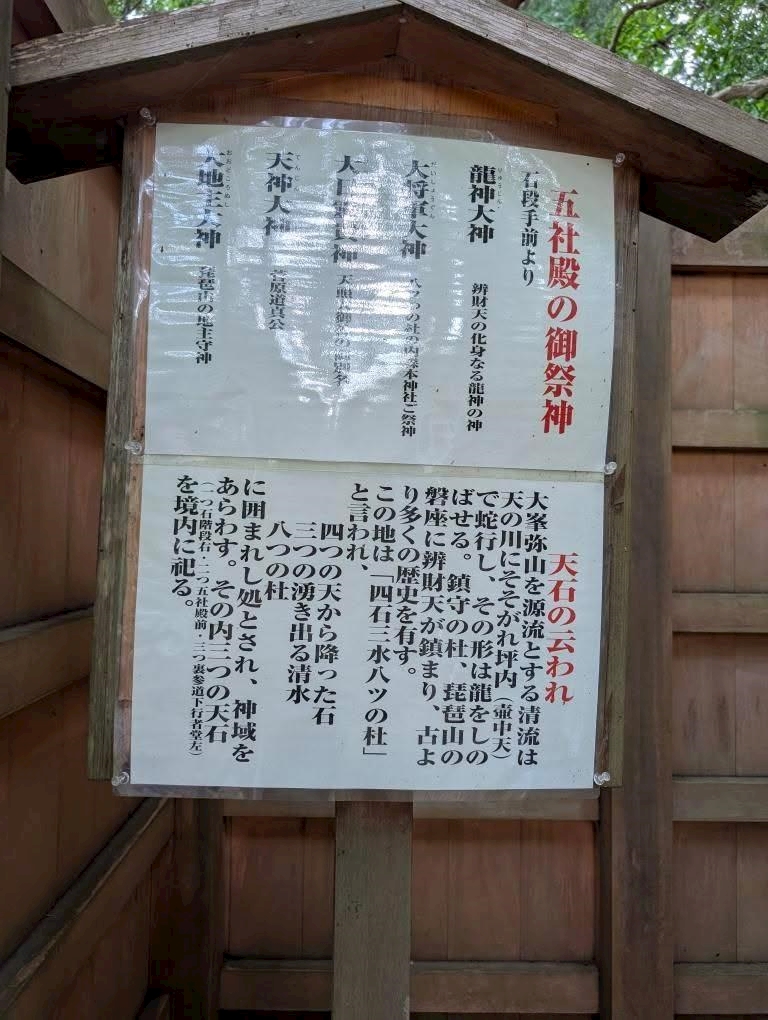 五社殿の御祭神
石段手前より
龍神大神 りゅうじん 辨財天の化身なる龍神の神
大将軍大神 だいしょうぐん の社の内 本神社ご祭神
大日霊貴神 天照
天神大神 てんじん 菅原道真公
大地主大神 おおところぬし 琵琶山の地主守神
天石の云われ
大峯弥山を源流とする清流は
天の川にそそがれ坪内（壺中天）
で蛇行し、その形は龍をしの
ばせる。鎮守の杜、琵琶山の
磐座に辨財天が鎮まり、古よ
り多くの歴史を有す。
この地は「四石三水八ツの杜」
と言われ、
四つの天から降った石
三つの湧き出る清水
八つの杜
に囲まれし処とされ、神域を
あらわす。その内三つの天石
（一つ石階段右・二つ五社殿前・三つ裏参道下行者堂左）
を境内に祀る。